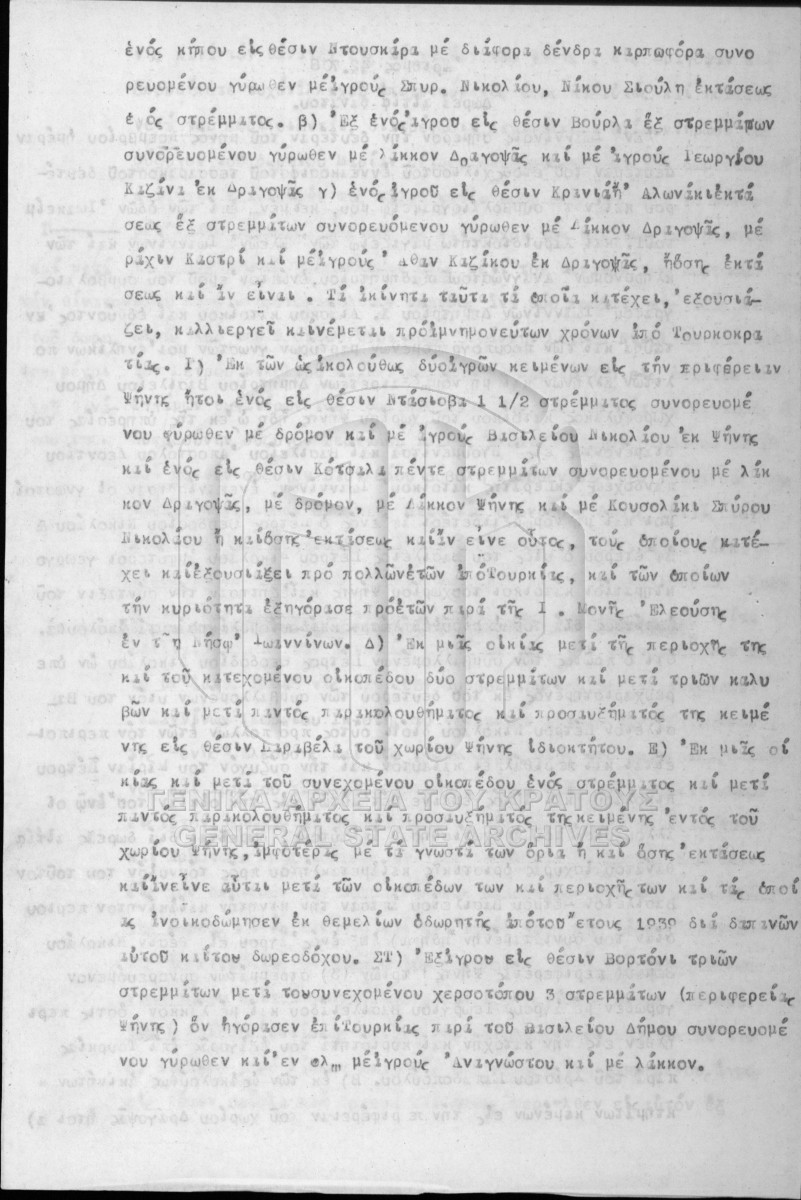 ἑνός κήπου εἰς θέσιν Ντουσκάρα μέ διάφορα δένδρα καρποφόρα συνο
ρευομένου γύρωθεν μέἀγρούς Σπυρ. Νικολάου, Νίκου Σιούλη ἐκτάσεως
ἑνός στρέμματος. β) Ἐξ ἑνόςἀγρου εἰς θέσιν Βούρλα ἕξ στρεμμάτων
συνορευομένου γύρωθεν μέ λάκκον Δραγοψᾶς καί μέ ἀγρούς Γεωργίου
Καζάνα ἐκ Δραγοψᾶς γ) ἑνόςἀγροῦ εἰς θέσιν Κρανιάἤ Αλωνάκιἐκτά
σεως ἕξ στρεμμάτων συνορευόμενου γύρωθεν μέ Λάκκον Δραγοψᾶς, μέ
ράχιν Καστρί καί μέἀγρούς Ἀθαν Καζάκου ἐκ Δραγοψᾶς, ἤὅσης ἐκτά
σεως καί ἄν εἶναι . Τά ἀκίνητα ταῦτα τά ὁποῖα κατέχει, ἐξουσιά-
ζει, καλλιεργεῖ καινέμεται πρόἀμνημονεύτων χρόνων ἀπό Τουρκοκρα
τίας. Γ) Ἐκ τῶν ὡςἀκολούθως δύοἀγρῶν κειμένων εἰς τήν περιφέρειαν
Ψήνας ἤτοι ἑνός εἰς θέσιν Ντάσιοβα 1 1/2 στρέμματος συνορευομέ
νου γύρωθεν μέ δρόμον καί μέ ἀγρούς Βασιλείου Νικολάου ἐκ Ψήνας
καί ἑνός εἰς θέσιν Κότσαλα πέντε στρεμμάτων συνορευομένου μέ λάκ
κον Δραγοψᾶς, μέ δρόμον, μέ Λάκκον Ψήνας καί μέ Κουσολάκι Σπύρου
Νικολάου ἤ καίὅσης ἐκτάσεως καίἄν εἶνε οὗτος, τούς ὁποίους κατέ-
χει καίἐξουσιάζει πρό πολλῶνἐτῶν ἀπόΤουρκίας, καί τῶν ὁποίων
τήν κυριότητα ἐξηγόρασε πρόἐτῶν παρά τῆς Ι . Μονῆς Ἐλεούσης
ἐν τῆ Νήσῳ Ἰωαννίνων. Δ) Ἐκ μιᾶς οἰκίας μετά τῆς περιοχῆς της
καί τοῦ κατεχομένου οἰκοπέδου δύο στρεμμάτων καί μετά τριῶν καλυ
βῶν καί μετά παντός παρακολουθήματος καί προσαυξήματός της κειμέ
νης εἰς θέσιν Καραβέλα τοῦ χωρίου Ψήνας ἰδιοκτήτου. Ε) Ἐκ μιᾶς οἰ
κίας καί μετά τοῦ συνεχομένου οἰκοπέδου ἑνός στρέμματος καί μετά
παντός παρακολουθήματος καί προσαυξήματος τηςκειμένης ἐντός τοῦ
χωρίου Ψήνας, ἀμφοτέρας μέ τά γνωστά των ὅρια ἤ καί ὅσης ἐκτάσεως
καίἄνεἶνε αὗται μετά τῶν οἰκοπέδων των καί περιοχῆς των καί τάς ὁποί
ας ἀνοικοδώμησεν ἐκ θεμελίων ὁδωρητής ἀπότοῦ ἔτους 1939 διά δαπανῶν
αὐτοῦ καίτου δωρεοδόχου. ΣΤ) Ἐξἀγρου εἰς θέσιν Βορτόνι τριῶν
στρεμμάτων μετά τουσυνεχομένου χερσοτόπου 3 στρεμμάτων (περιφερείας
Ψήνας ) ὅν ἠγόρασεν ἐπίΤουρκίας παρά τοῦ Βασιλείου Δήμου συνορευομέ
νου γύρωθεν καί ἐν ἀλ μέἀγρούς Ἀναγνώστου καί μέ λάκκον.
ΓΕΝΙΚΑ ΑΡΧΕΙΑ ΤΟΥ ΚΡΑΤΟΥΣ
GENERAL STATE ARCHIVES